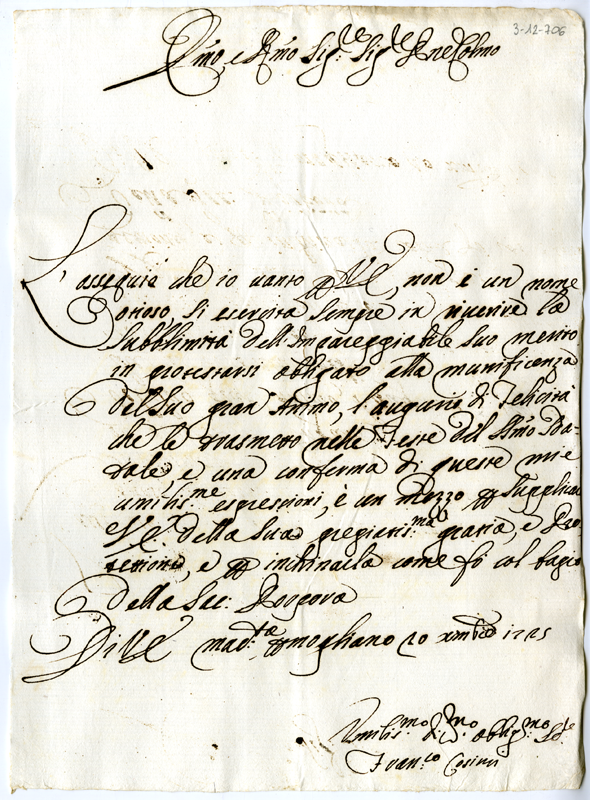 3-12-706
Emo, e Rmo Sig.r Sig.r Pne Colmo
L'ossequio che io vanto p VE, non è un nome
otioso, si esercita sempre in riverire la
subblimità dell'Impareggiabile suo merito
in protestarsi obligato alla munificenza
del suo gran Animo, l'augurio di Felicità
che le trasmetto nelle Feste del SSmo Na-
tale, è una conferma di queste mie
umilis.me espressioni, è un mezzo p supplicar
VE. della sua pregiatis.ma gratia, e Pro-
tettione, e p inchinarla come fò col bagio
della Sac: Porpora
Di VE mad.ta pmogliano 20 xmbre 1725
Vmilis.mo di.mo obblig.mo S.re
Fran.co Cosimi